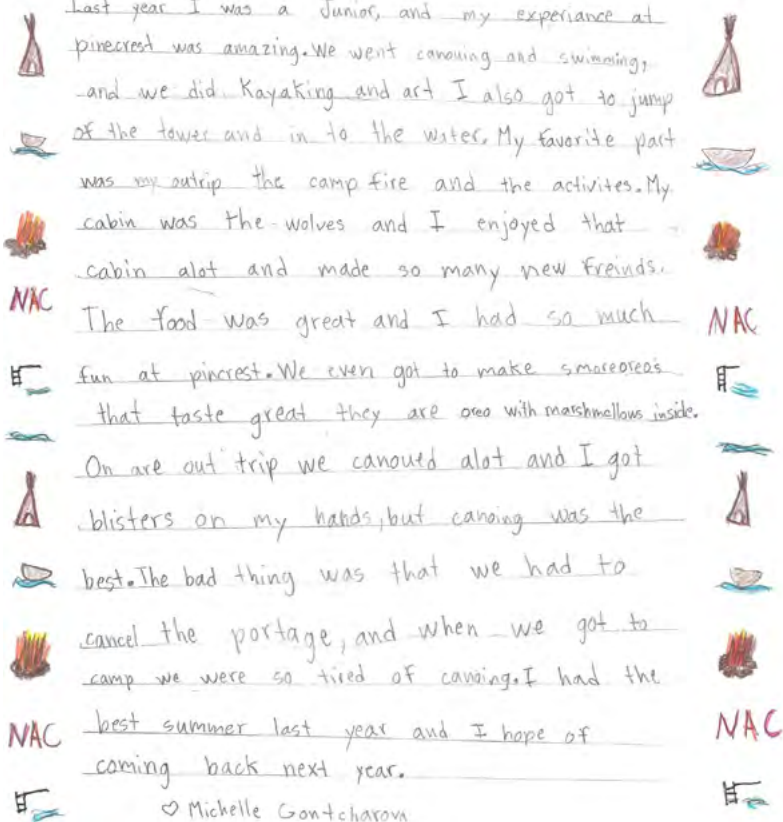 Last year I was a Junior, and my experiance at
pinecrest was amazing. We went canouing and swimming,
and we did Kayaking and art I also got to jump
of the tower and in to the water. My favorite part
was my outrip the camp fire and the activites. My
cabin was the wolves and I enjoyed that
cabin alot and made so many new freinds.
NAC
The food was great and I had so much
NAC
fun at pincrest. We even got to make smoreoreo's
that taste great they are oreo with marshmellows inside.
On are out trip we canoued alot and I got
blisters on my hands, but canoing was the
best. The bad thing was that we had to
cancel the portage, and when we got to
camp we were so tired of canoing. I had the
NAC
best summer last year and I hope of
NAC
coming back next year.
♡ Michelle Gontcharova